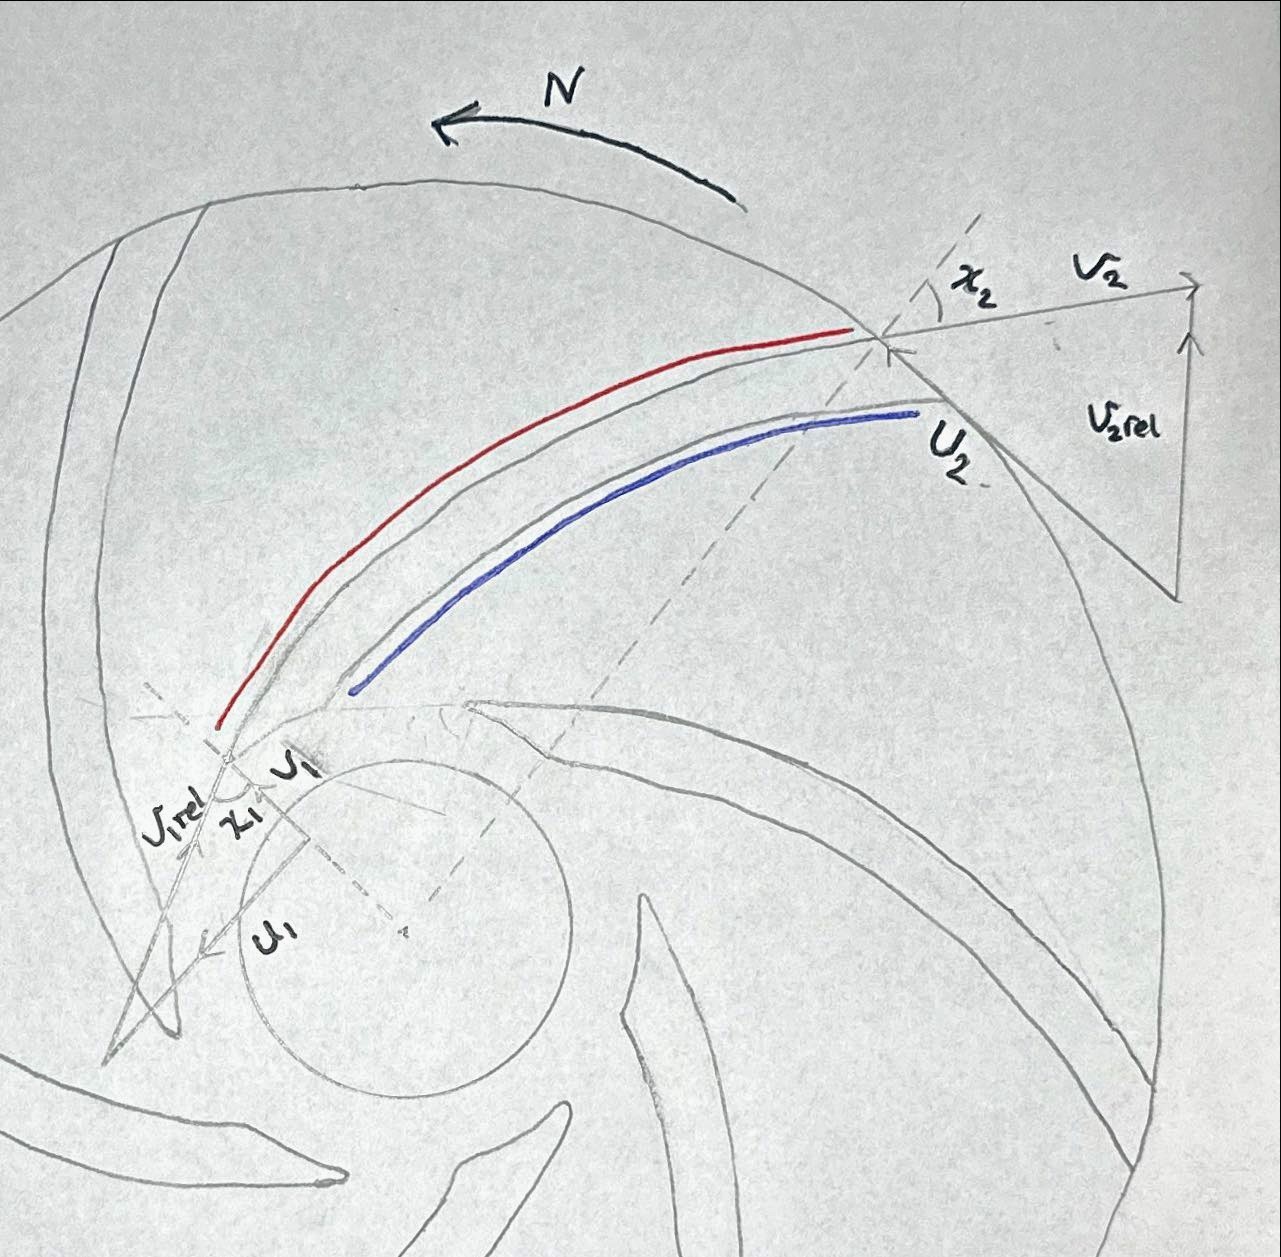 N
x₂
V₂
V₂rel
U₂
V₁
V₁rel
x₁
U₁